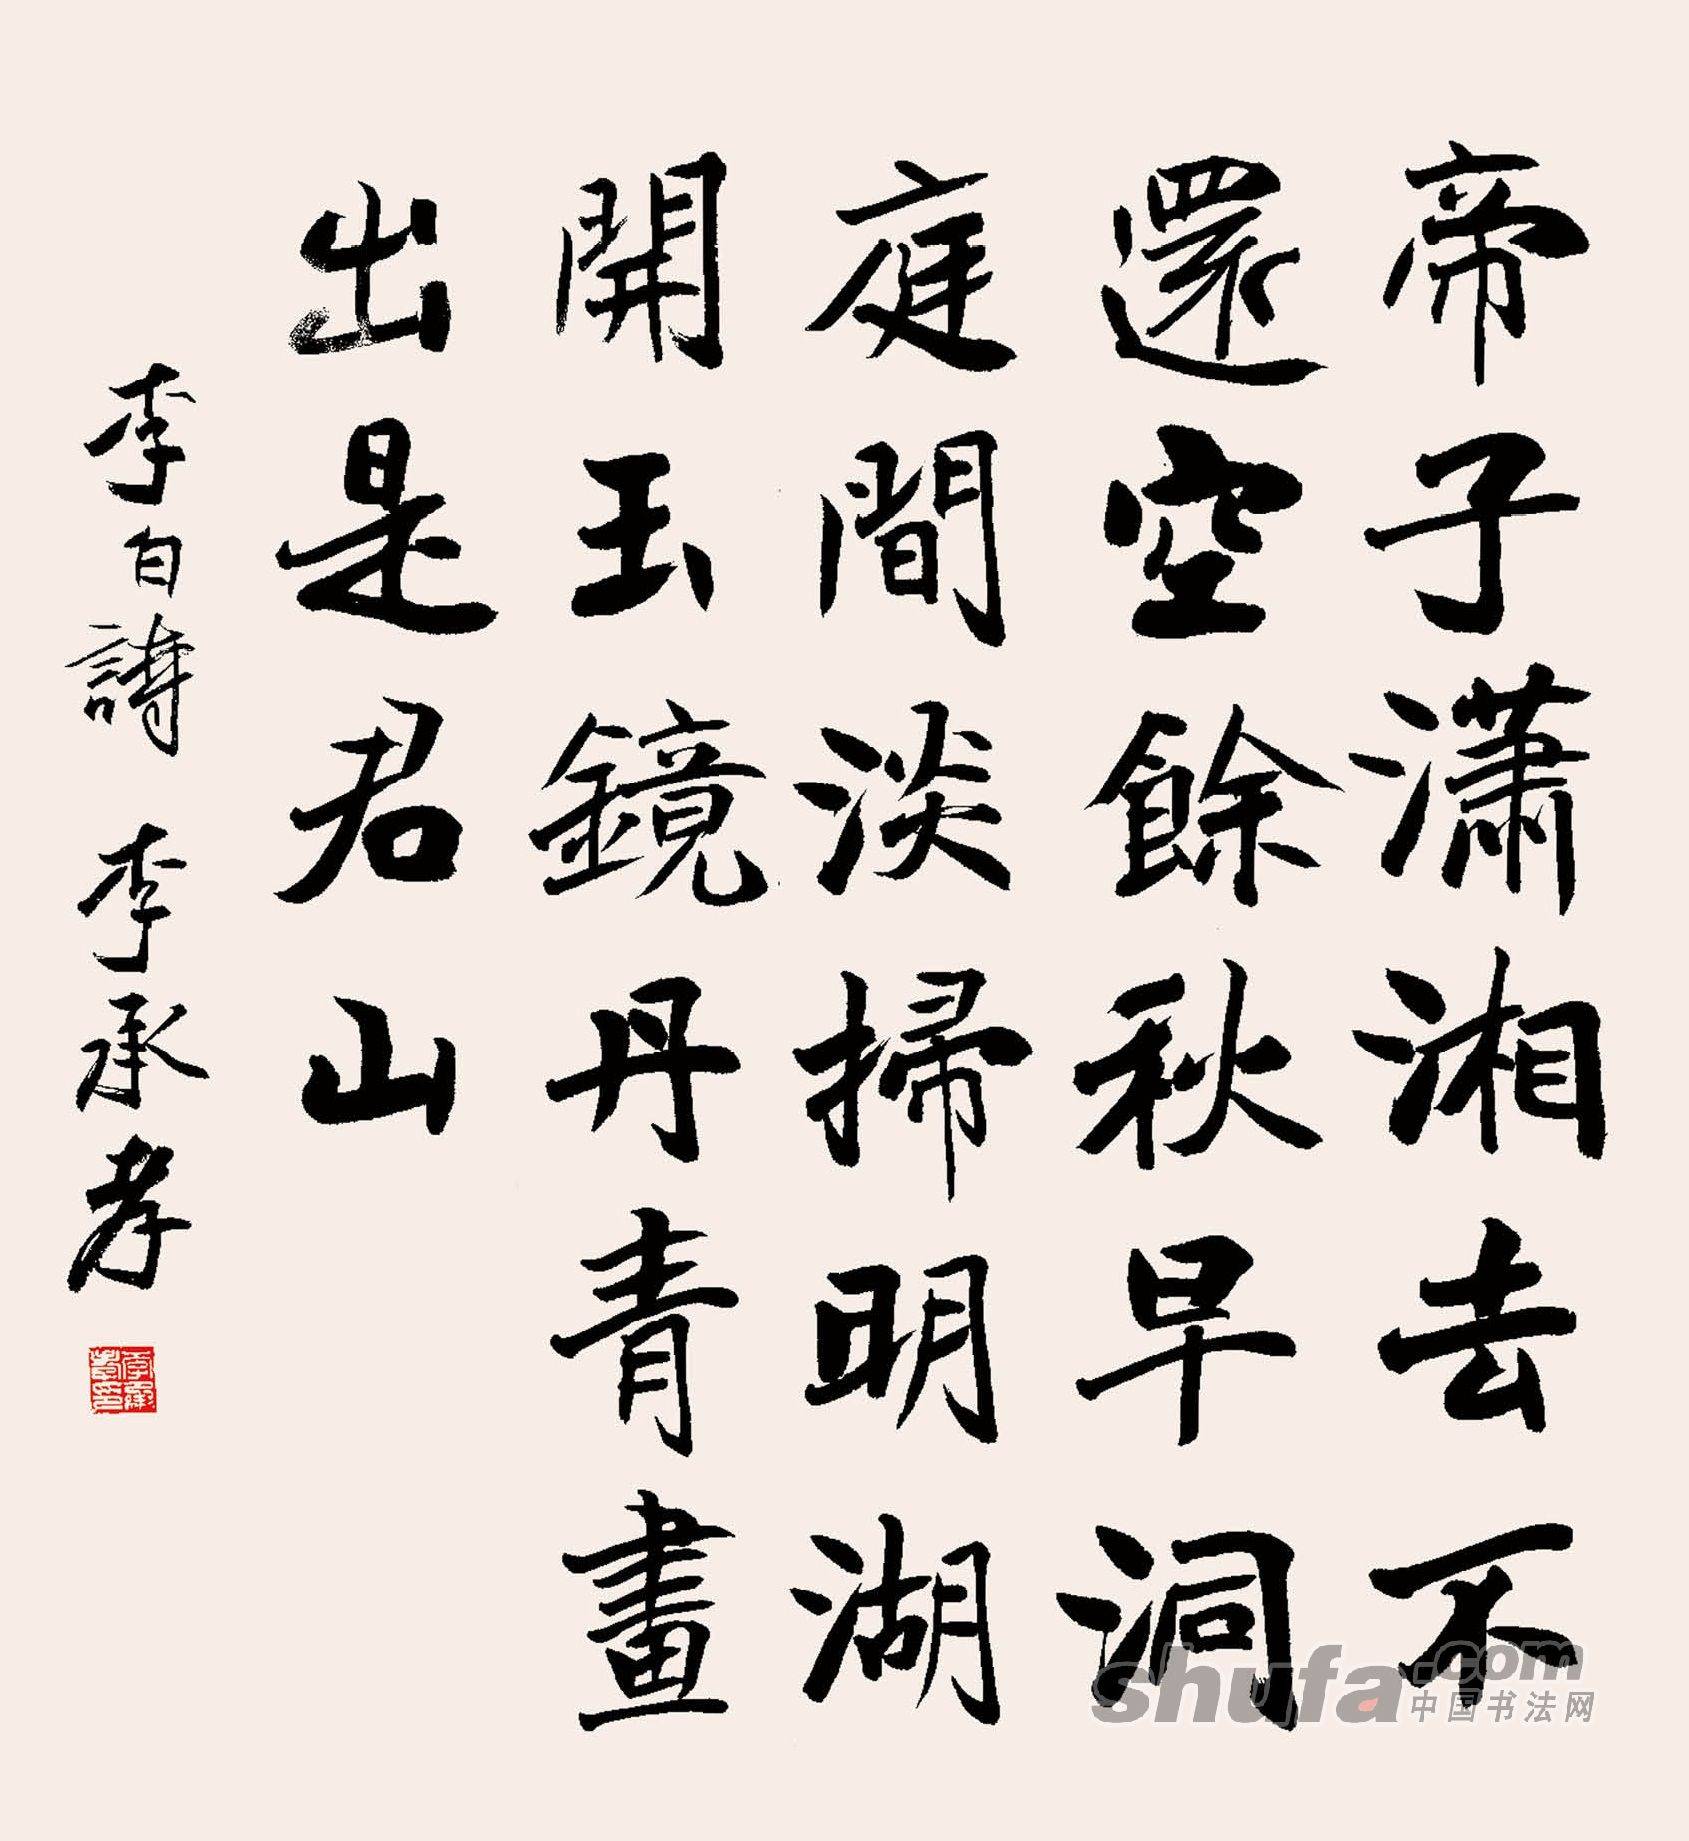 帝子瀟湘去不
還空餘秋早洞
庭間淡掃明湖
開玉鏡丹青畫
出是君山
李白詩 李承孝
李承孝印
shufa.com
中国书法网